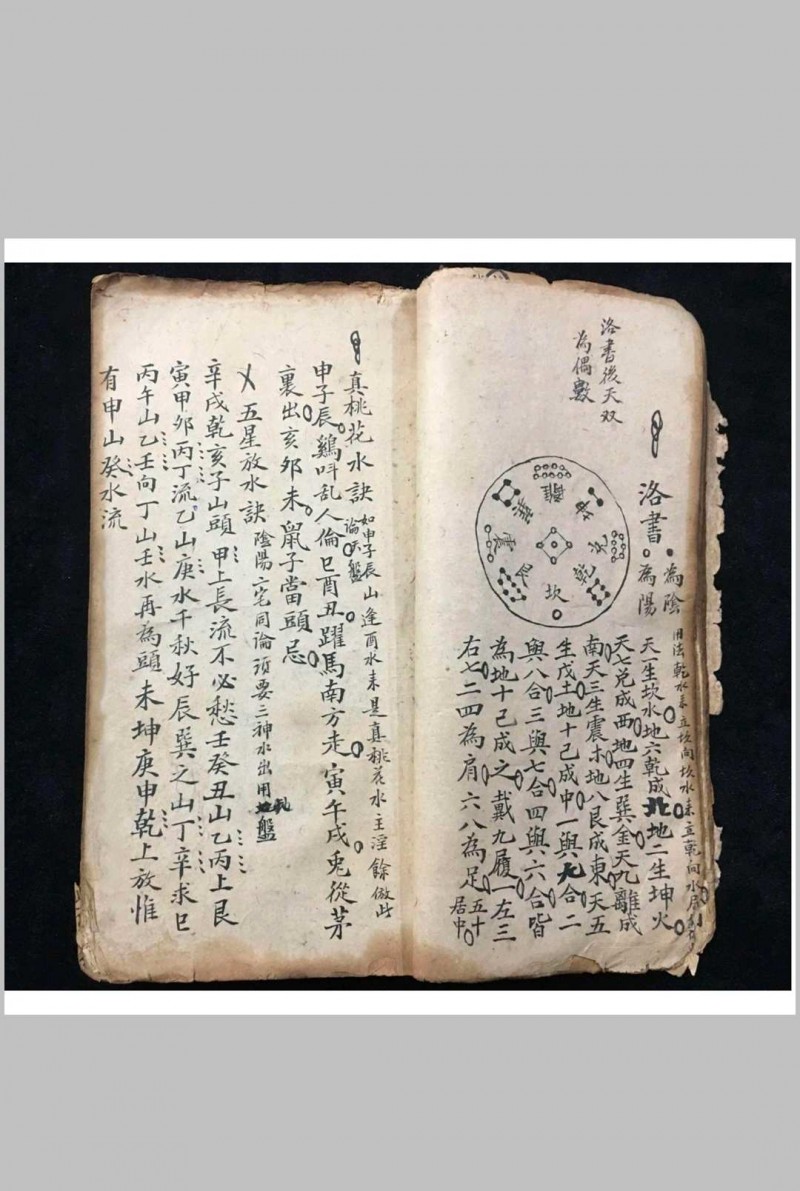 洛書後天双
為偶數
洛書
•為陰
◦為陽
離
坤
兌
乾
坎
艮
震
巽
用法乾水來立坎向坎水來立乾向水
天一生坎水地六乾成北地二生坤火
天七兌成西地四生巽金天九離成
南天三生震木地八艮成東天五
生戊土地十己成中一與九合二
與八合三與七合四與六合皆
為地十己成之戴九履一左三
右七二四為肩六八為足五十
居中
真桃花水訣如申子辰山逢酉水來是真桃花水主淫餘倣此
論天盤
申子辰鷄呌乱人倫巳酉丑躍馬南方走寅午戌兎從茅
裏出亥卯未鼠子當頭忌
五星放水訣陰陽二宅同論須要二神水出用盤
辛戌乾亥子山頭甲上長流不必愁壬癸丑山乙丙上艮
寅甲卯丙丁流乙山庚水千秋好辰巽之山丁辛求巳
丙午山乙壬向丁山壬水再為頭未坤庚申乾上放惟
有申山癸水流